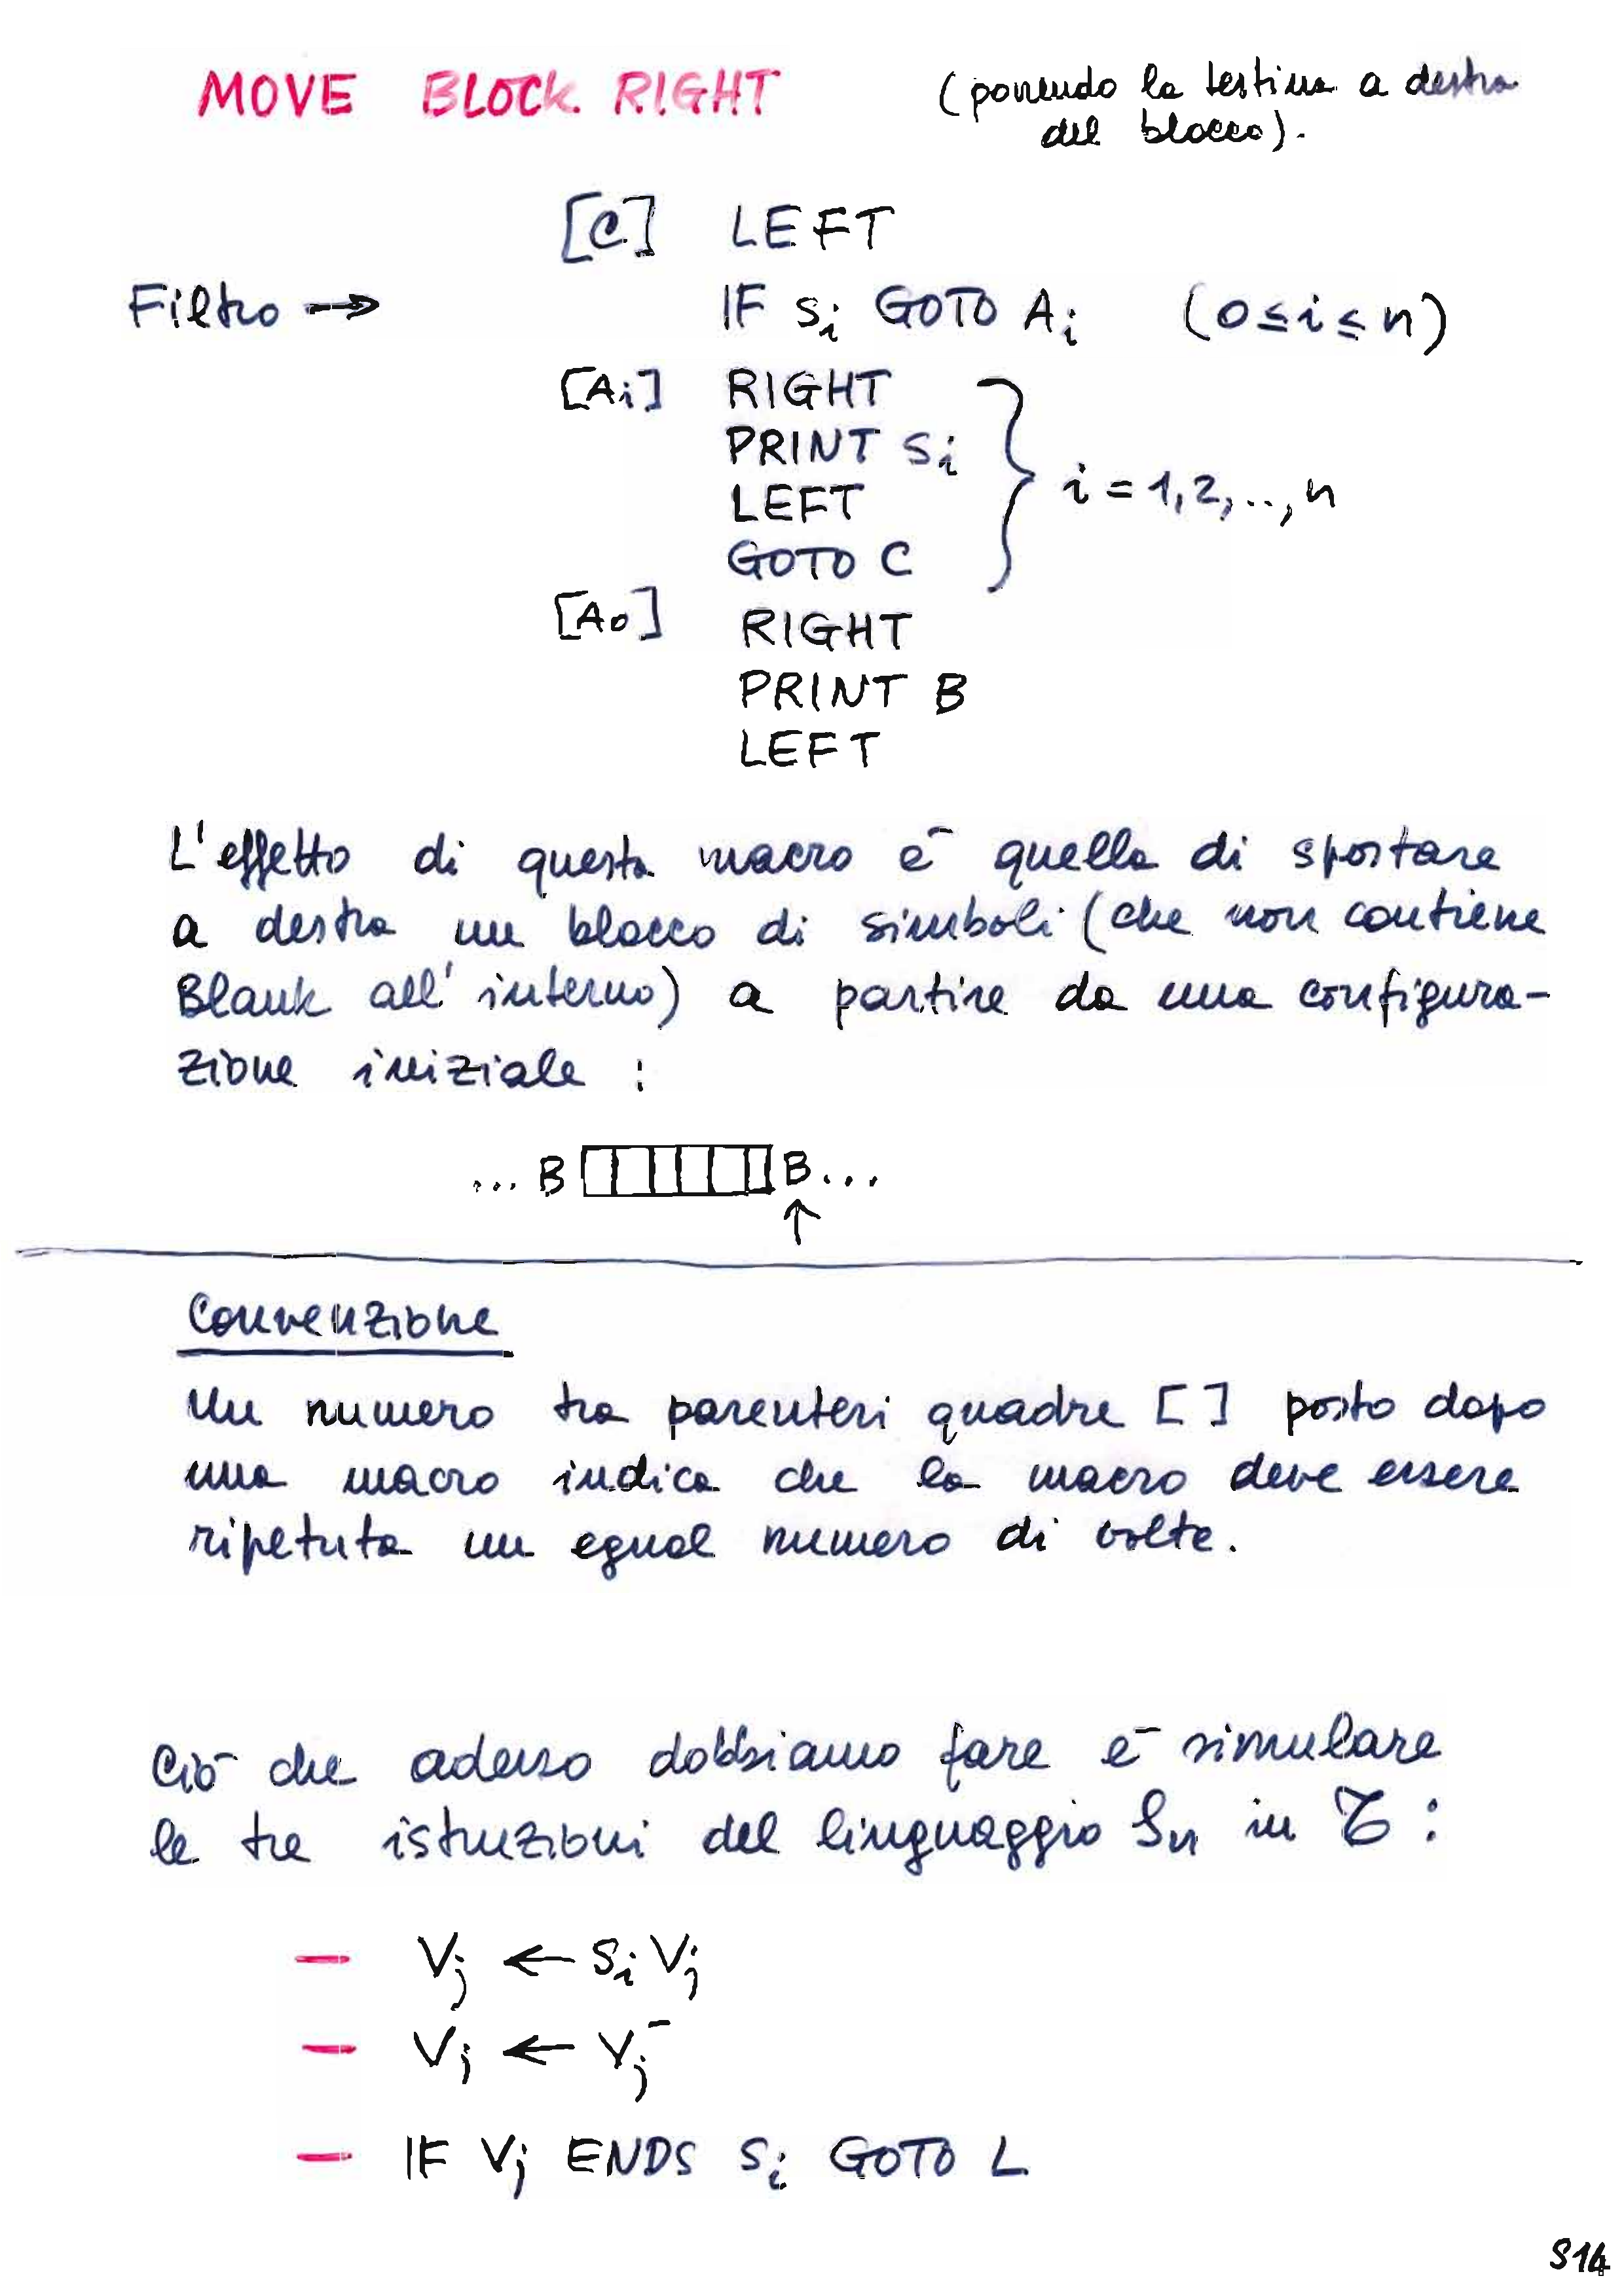 MOVE BLOCK RIGHT (ponendo la testina a destra
del blocco).
[C] LEFT
Filtro → IF si GOTO Ai (0≤i≤n)
[Ai] RIGHT
PRINT si
LEFT
i=1,2,..,n
GOTO C
[A0] RIGHT
PRINT B
LEFT
L'effetto di questa macro è quella di spostare
a destra un blocco di simboli (che non contiene
Blank all'interno) a partire da una configura-
zione iniziale :
... B B...
↑
Convenzione
Un numero tra parentesi quadre [ ] posto dopo
una macro indica che la macro deve essere
ripetuta un egual numero di volte.
Ciò che adesso dobbiamo fare è simulare
le tre istruzioni del linguaggio Sn in T :
— Vj ← si Vj
— Vj ← Vj⁻
— IF Vj ENDS si GOTO L
S14